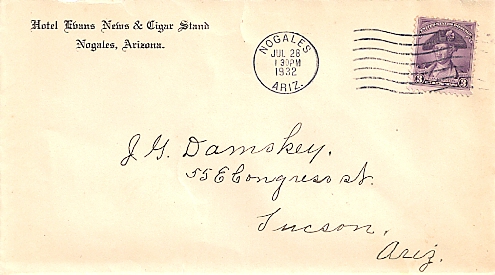 Hotel Evans News & Cigar Stand
Nogales, Arizona.
NOGALES
JUL 28
1 30PM
1932
ARIZ.
3 3
J. G. Damskey.
55 E Congress st.
Tucson,
Ariz.